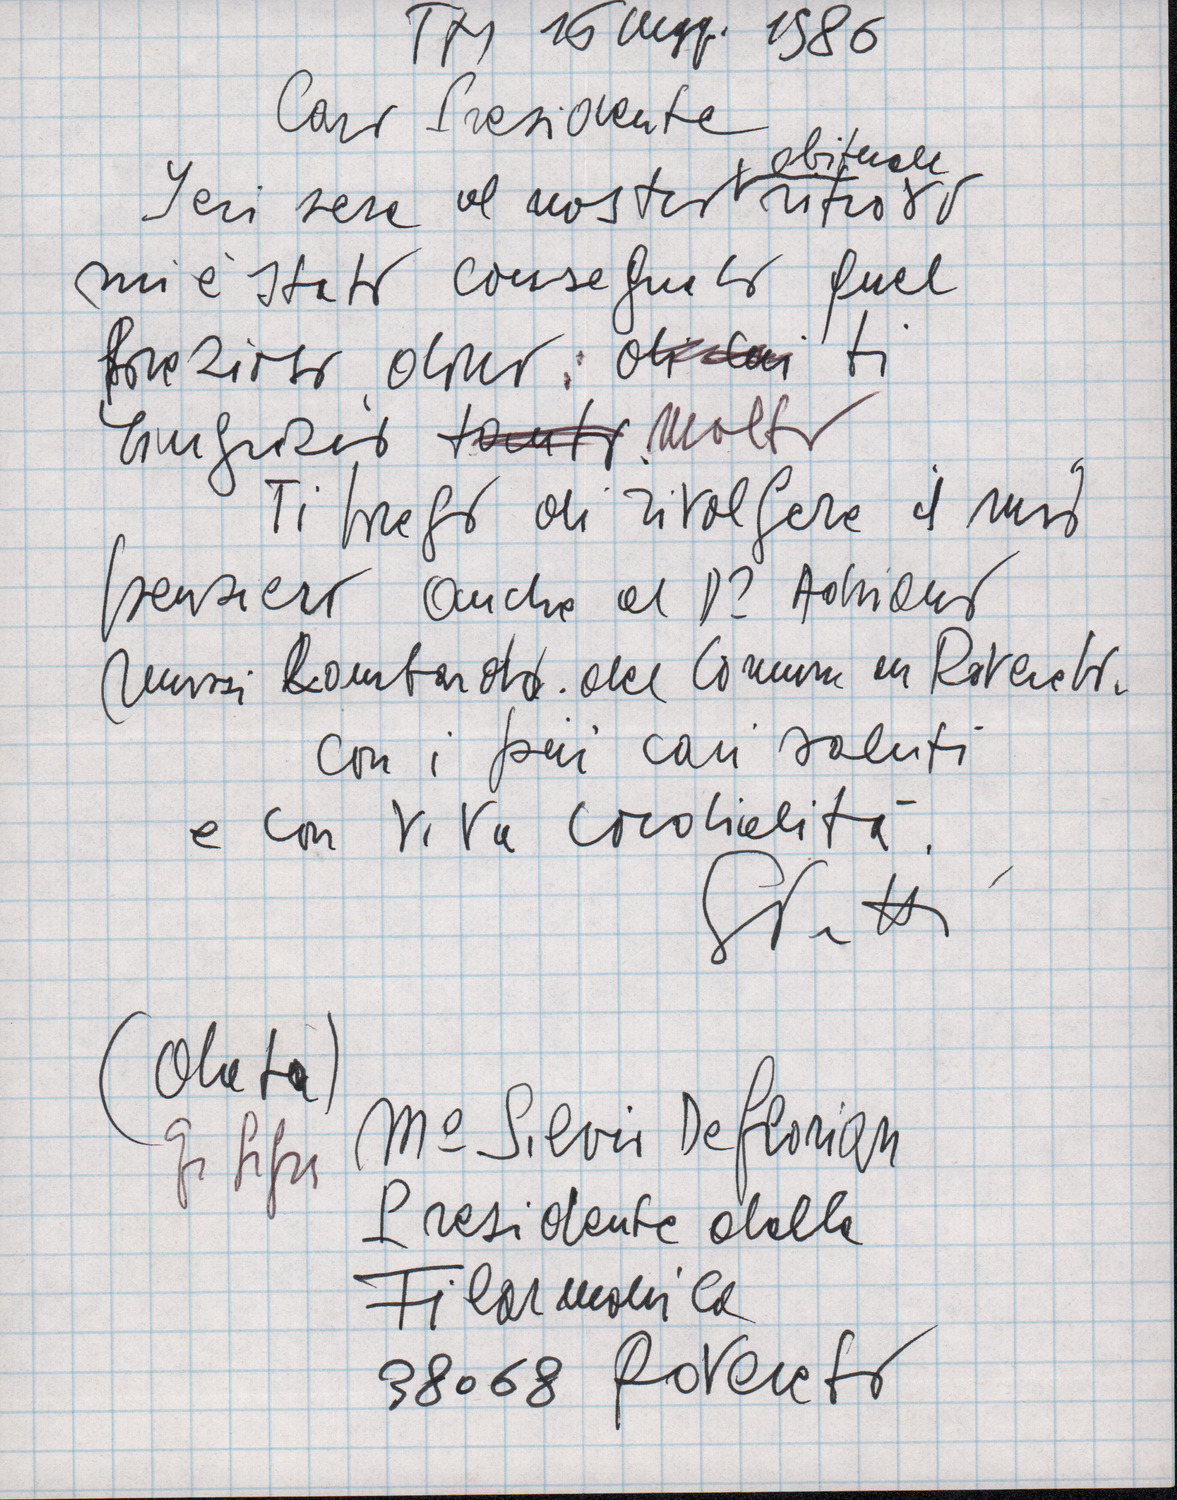 TN 16 Magg. 1986
Caro Presidente
abituale
Ieri sera al nostro ritrovo
mi è stato consegnato quel
prezioso dono: di cui ti
ringrazio tanto. Molto
Ti prego di rivolgere il mio
pensiero anche al Dº Adriano
Rombardo. del Comune di Rovereto.
con i più cari saluti
e con viva cordialità.
(data)
Mº Silvio Deflorian
Presidente della
Filarmonica
38068 Rovereto